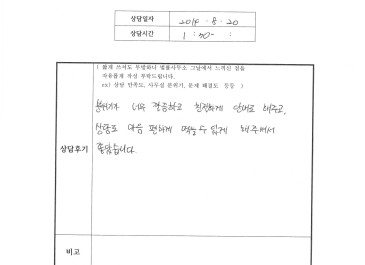 상담일자 2014 - 8 - 20
상담시간 1 : 50 - :
( 짧게 쓰셔도 무방하니 법률사무소 그날에서 느끼신 점을
자유롭게 작성 부탁드립니다.
ex) 상담 만족도, 사무실 분위기, 문제 해결도 등등 )
분위기가 너무 깔끔하고 친절하게 안내를 해주고,
상담도 마음 편하게 먹을 수 있게 해주셔서
좋았습니다.
상담후기
비고